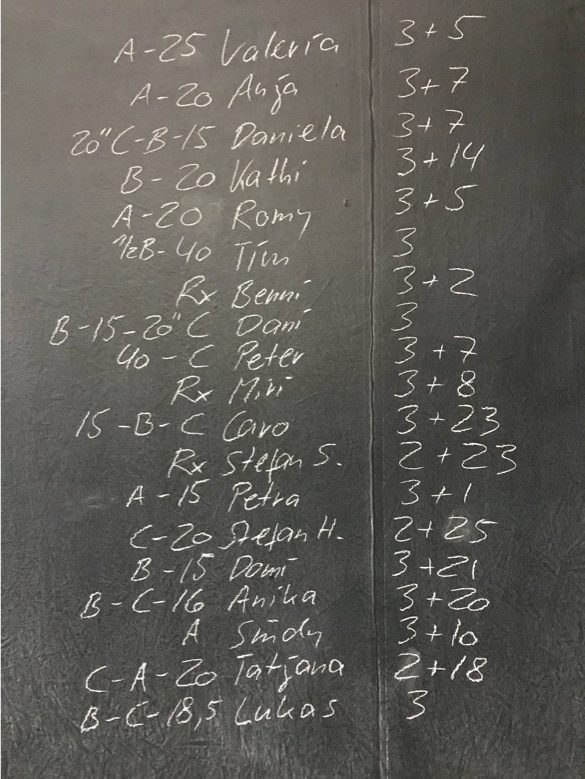 A-25 Valeria 3+5
A-20 Anja 3+7
20"C-B-15 Daniela 3+7
B-20 Kathi 3+14
A-20 Romy 3+5
1/2B-40 Tim 3
Rx Benni 3+2
B-15-20"C Dani 3
40-C Peter 3+7
Rx Miri 3+8
15-B-C Caro 3+23
Rx Stefan S. 2+23
A-15 Petra 3+1
C-20 Stefan H. 2+25
B-15 Domi 3+21
B-C-16 Anika 3+20
A 3+10
C-A-20 Tatjana 2+18
B-C-18,5 Lukas 3